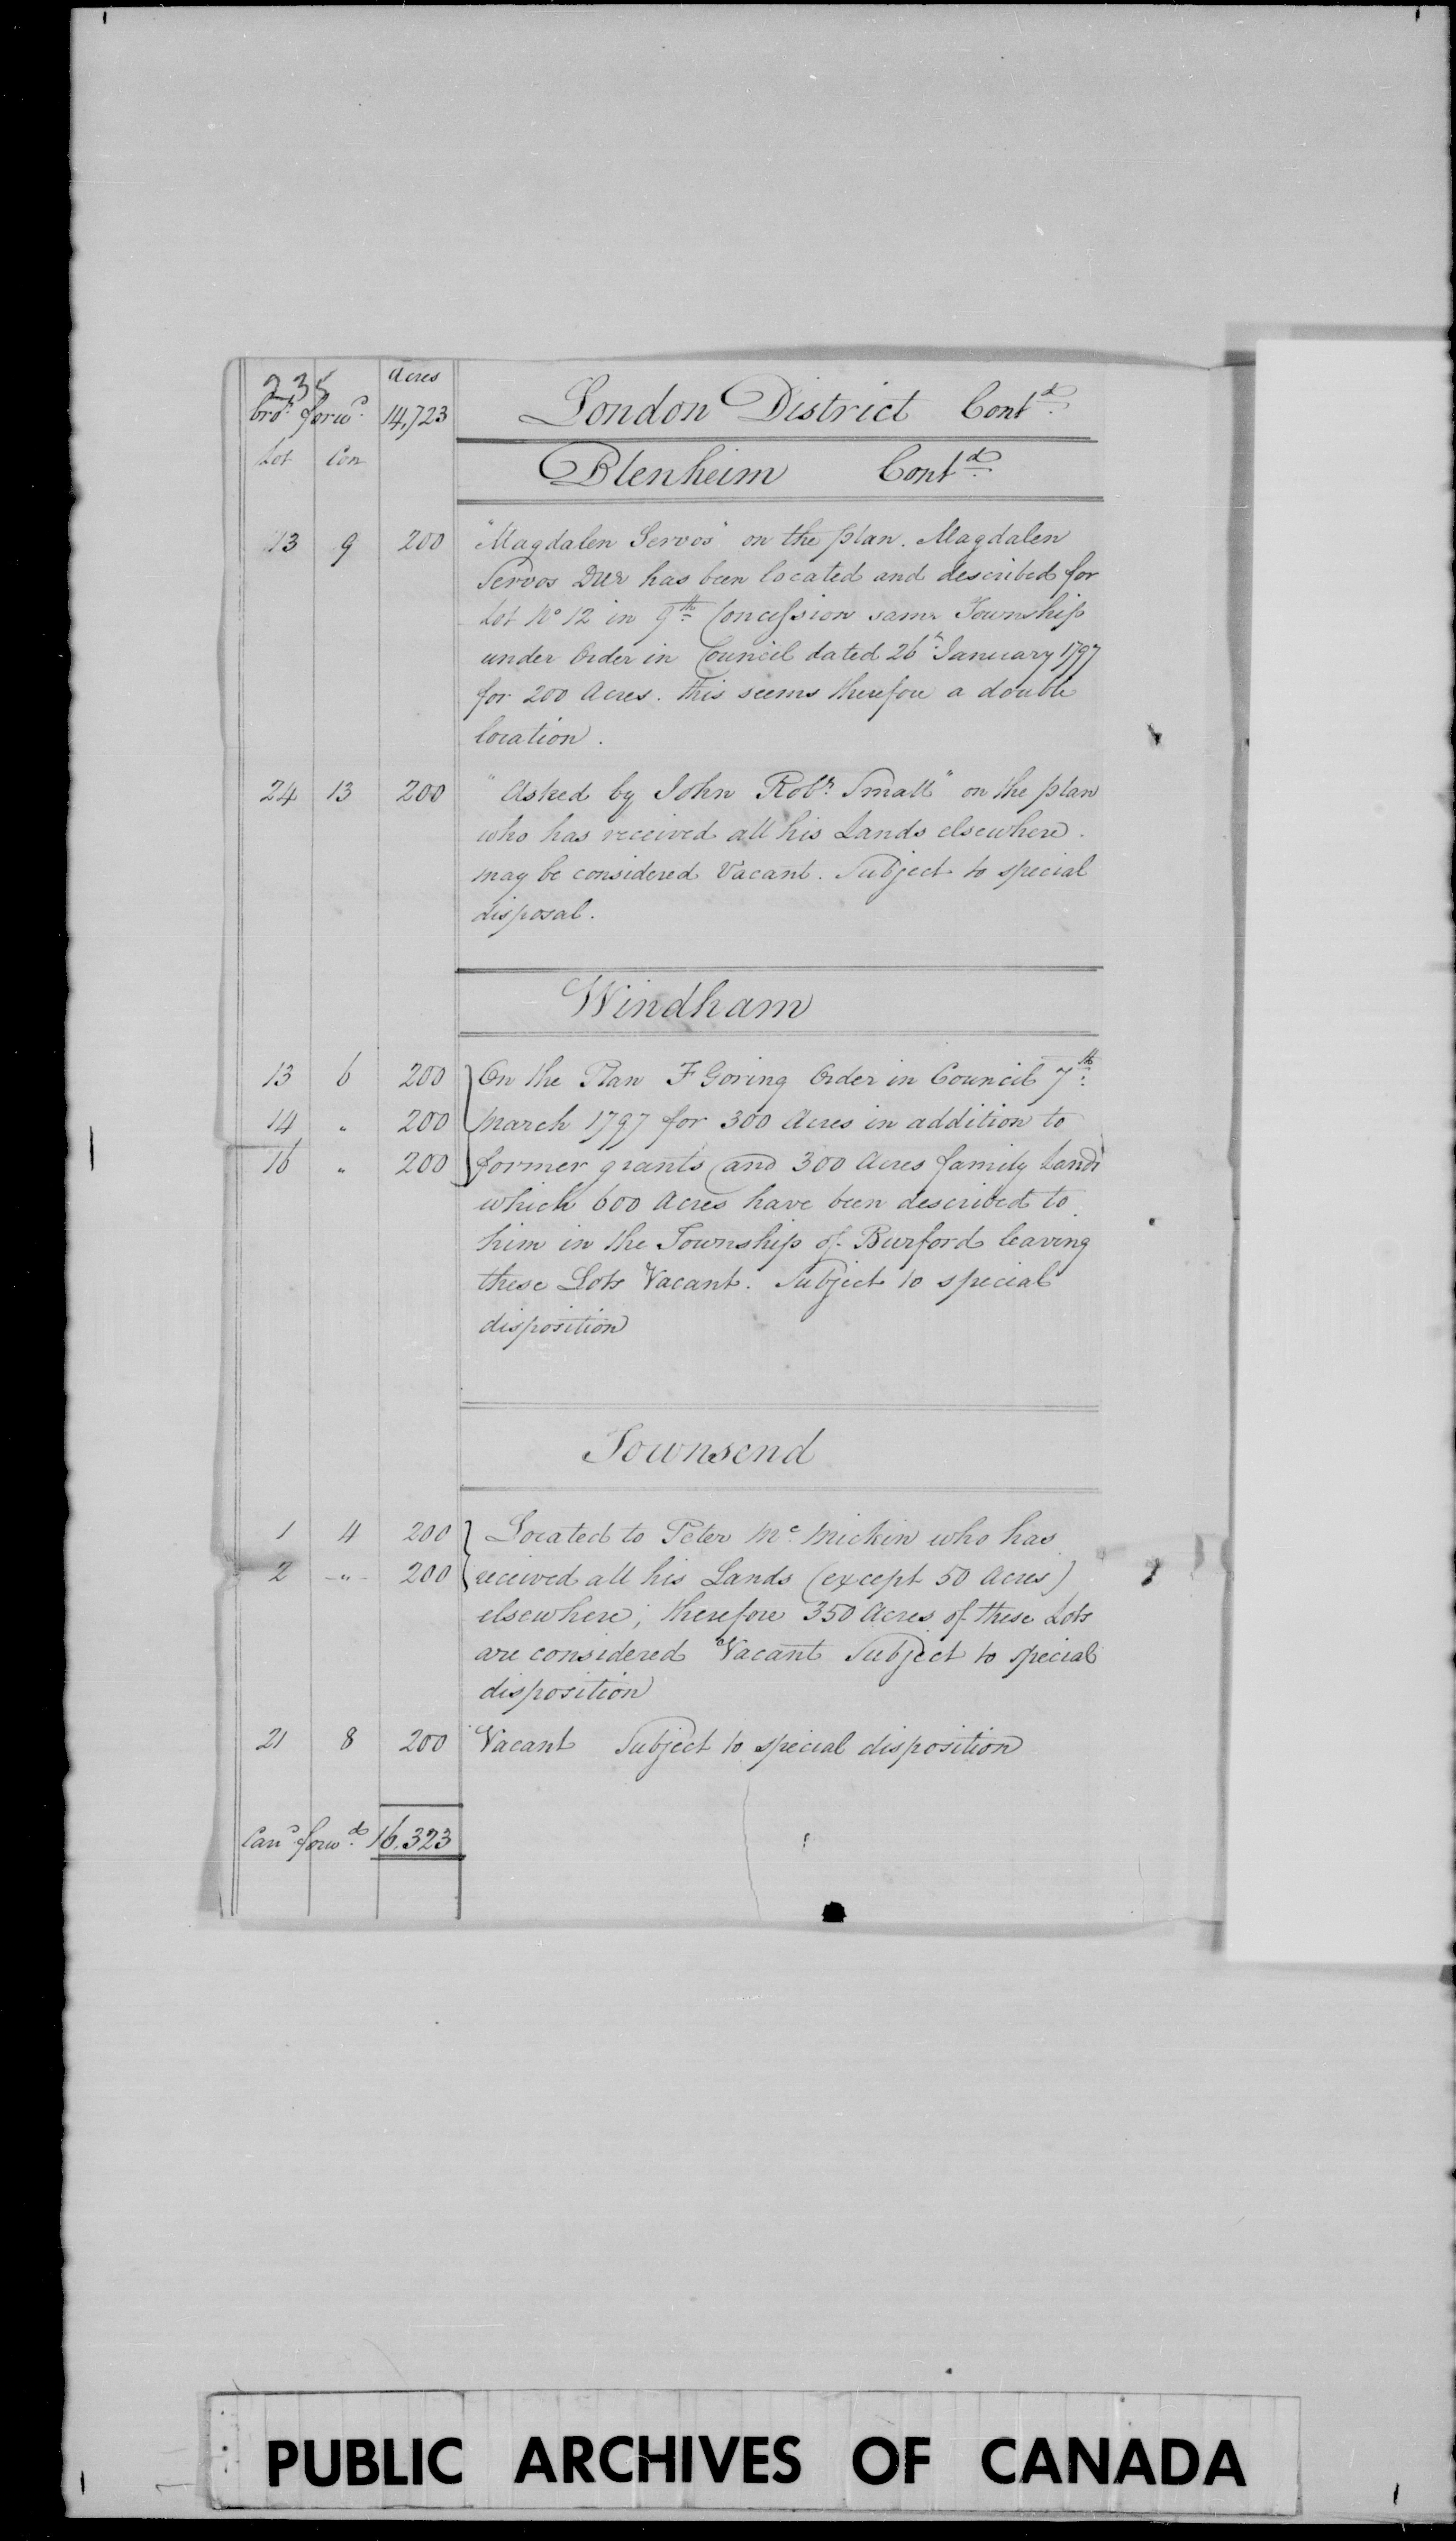 235 Acres
bro.t forw.d 14,723 London District Cont.d
Lot Con Blenheim Cont.d
13 9 200 "Magdalen Servos" on the plan. Magdalen
Servos DUE has been located and described for
Lot No 12 in 9th Concession same Township
under Order in Council dated 26th January 1797
for 200 Acres. this seems therefore a double
location.
24 13 200 "Asked by John Robt. Small" on the plan
who has received all his Lands elsewhere.
may be considered Vacant. Subject to special
disposal.
Windham
13 6 200 On the Plan F Goring Order in Council 7th
14 " 200 March 1797 for 300 Acres in addition to
16 " 200 former grants and 300 Acres family Lands
which 600 Acres have been described to
him in the Township of Burford leaving
these Lots Vacant. Subject to special
disposition
Townsend
1 4 200 Located to Peter Mc Mickin who has
2 -"- 200 received all his Lands (except 50 Acres)
elsewhere; therefore 350 Acres of these Lots
are considered Vacant Subject to special
disposition
21 8 200 Vacant Subject to special disposition
Carrd forw.d 16.323
PUBLIC ARCHIVES OF CANADA